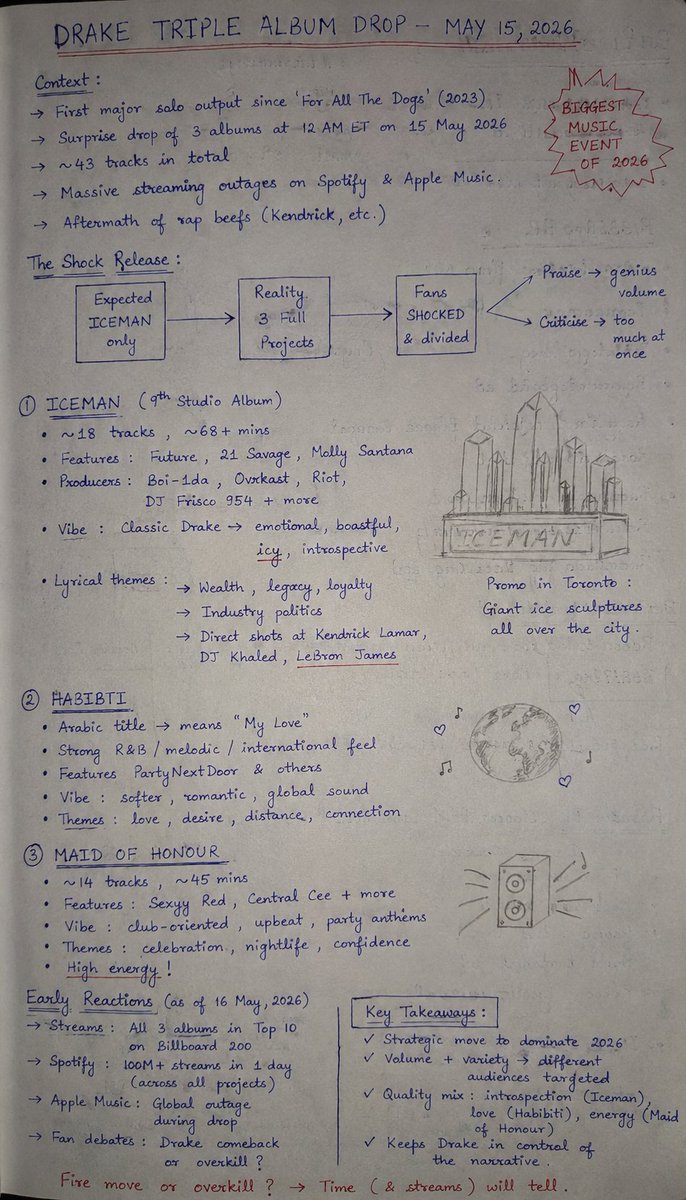 DRAKE TRIPLE ALBUM DROP – MAY 15, 2026
Context :
→ First major solo output since 'For All The Dogs' (2023)
→ Surprise drop of 3 albums at 12 AM ET on 15 May 2026
→ ~43 tracks in total
→ Massive streaming outages on Spotify & Apple Music.
→ Aftermath of rap beefs (Kendrick, etc.)
BIGGEST
MUSIC
EVENT
OF 2026
The Shock Release :
Expected
ICEMAN
only
Reality
3 Full
Projects
Fans
SHOCKED
& divided
Praise → genius
volume
Criticise → too
much at
once
① ICEMAN (9th Studio Album)
• ~18 tracks , ~68+ mins
• Features : Future , 21 Savage , Molly Santana
• Producers : Boi-1da , Ovrkast , Riot,
DJ Frisco 954 + more
• Vibe : Classic Drake → emotional, boastful,
icy, introspective
• Lyrical themes : → Wealth , legacy, loyalty
→ Industry politics
→ Direct shots at Kendrick Lamar,
DJ Khaled , LeBron James
ICEMAN
Promo in Toronto :
Giant ice sculptures
all over the city.
② HABIBTI
• Arabic title → means "My Love"
• Strong R&B / melodic / international feel
• Features PartyNextDoor & others
• Vibe : softer , romantic , global sound
• Themes : love , desire , distance , connection
③ MAID OF HONOUR
• ~14 tracks , ~45 mins
• Features : Sexyy Red , Central Cee + more
• Vibe : club-oriented , upbeat , party anthems
• Themes : celebration , nightlife , confidence
• High energy !
Early Reactions (as of 16 May, 2026)
→ Streams : All 3 albums in Top 10
on Billboard 200
→ Spotify : 100M+ streams in 1 day
(across all projects)
→ Apple Music : Global outage
during drop
→ Fan debates : Drake comeback
or overkill ?
Key Takeaways :
✓ Strategic move to dominate 2026
✓ Volume + variety → different
audiences targeted
✓ Quality mix : introspection (Iceman),
love (Habibiti), energy (Maid
of Honour)
✓ Keeps Drake in control of
the narrative.
Fire move or overkill ? → Time (& streams) will tell.